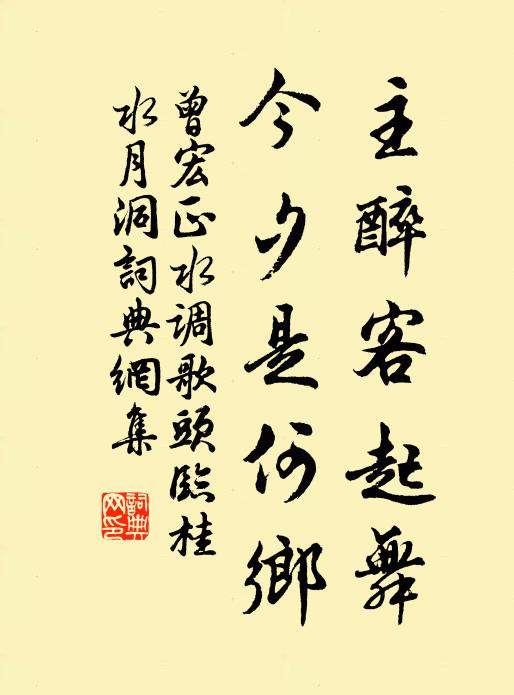 主醉客起舞
今夕是何鄉
曾宏正水调歌頭臨桂
水月洞詞典網集
詞典網印